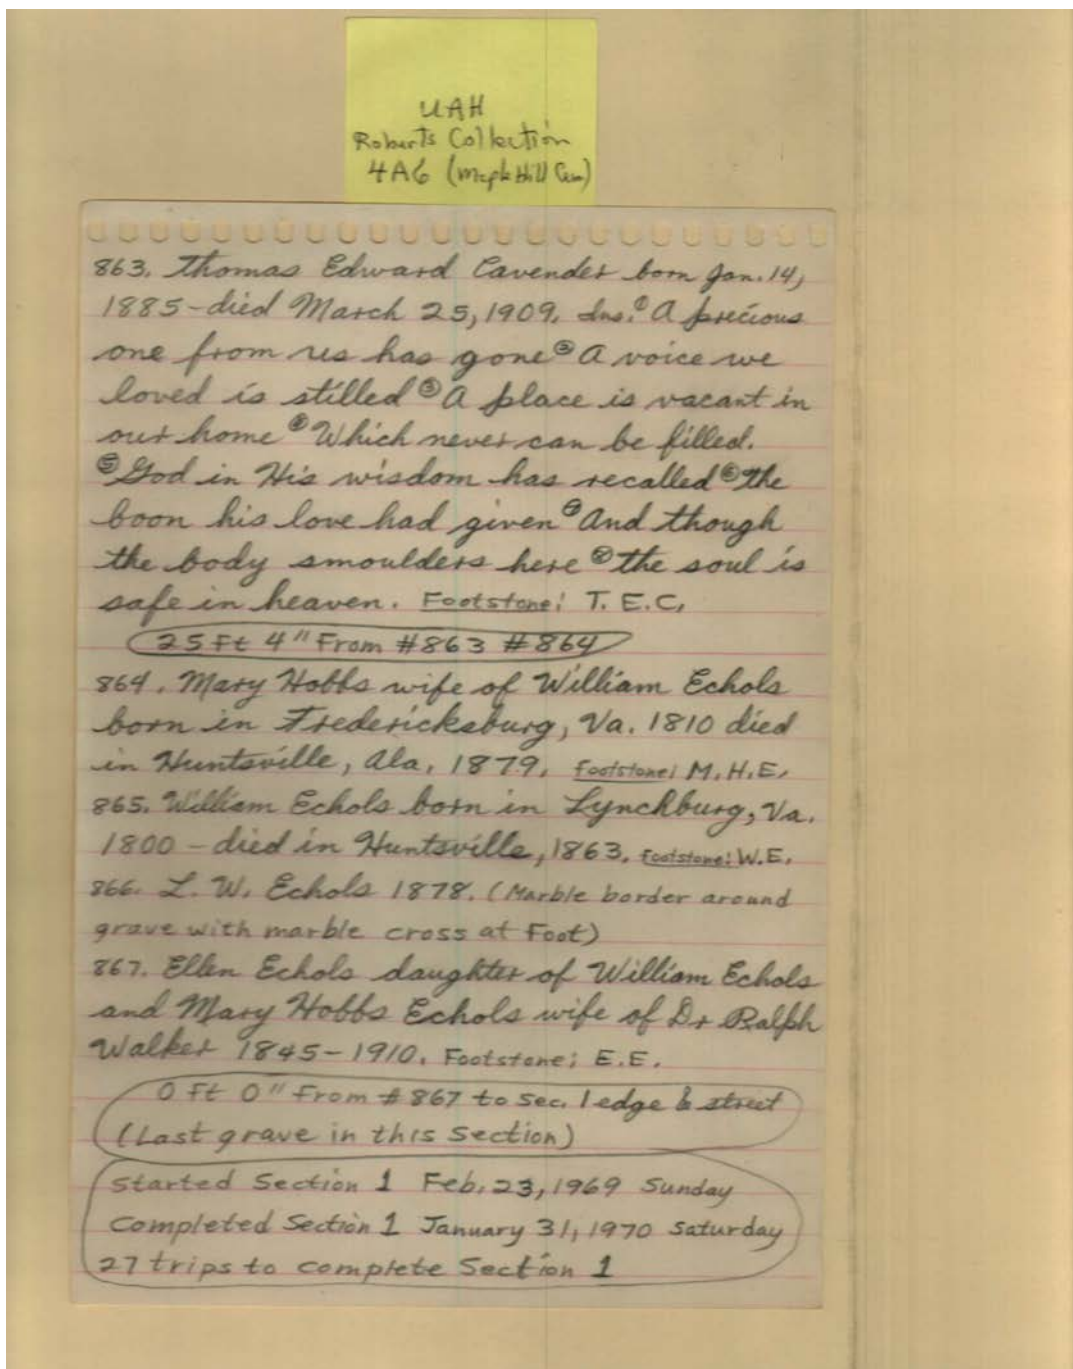 UAH
Roberts Collection
4A6 (Maple Hill Cem)
863. Thomas Edward Cavender born Jan. 14,
1885-died March 25, 1909. Ins. ① A precious
one from us has gone ② A voice we
loved is stilled ③ A place is vacant in
our home ④ Which never can be filled.
⑤ God in His wisdom has recalled ⑥ the
boon his love had given ⑦ And though
the body smoulders here ⑧ the soul is
safe in heaven. Footstone: T. E. C.
25 Ft 4" From #863 #864
864. Mary Hobbs wife of William Echols
born in Fredericksburg, Va. 1810 died
in Huntsville, Ala. 1879. Footstone: M.H.E.
865. William Echols born in Lynchburg, Va.
1800 - died in Huntsville, 1863. Footstone: W.E.
866. L. W. Echols 1878. (Marble border around
grave with marble cross at Foot)
867. Ellen Echols daughter of William Echols
and Mary Hobbs Echols wife of Dr Ralph
Walker 1845-1910. Footstone: E.E.
0 Ft 0" From #867 to Sec. 1 edge & street
(Last grave in this Section)
Started Section 1 Feb. 23, 1969 Sunday
Completed Section 1 January 31, 1970 Saturday
27 trips to complete Section 1